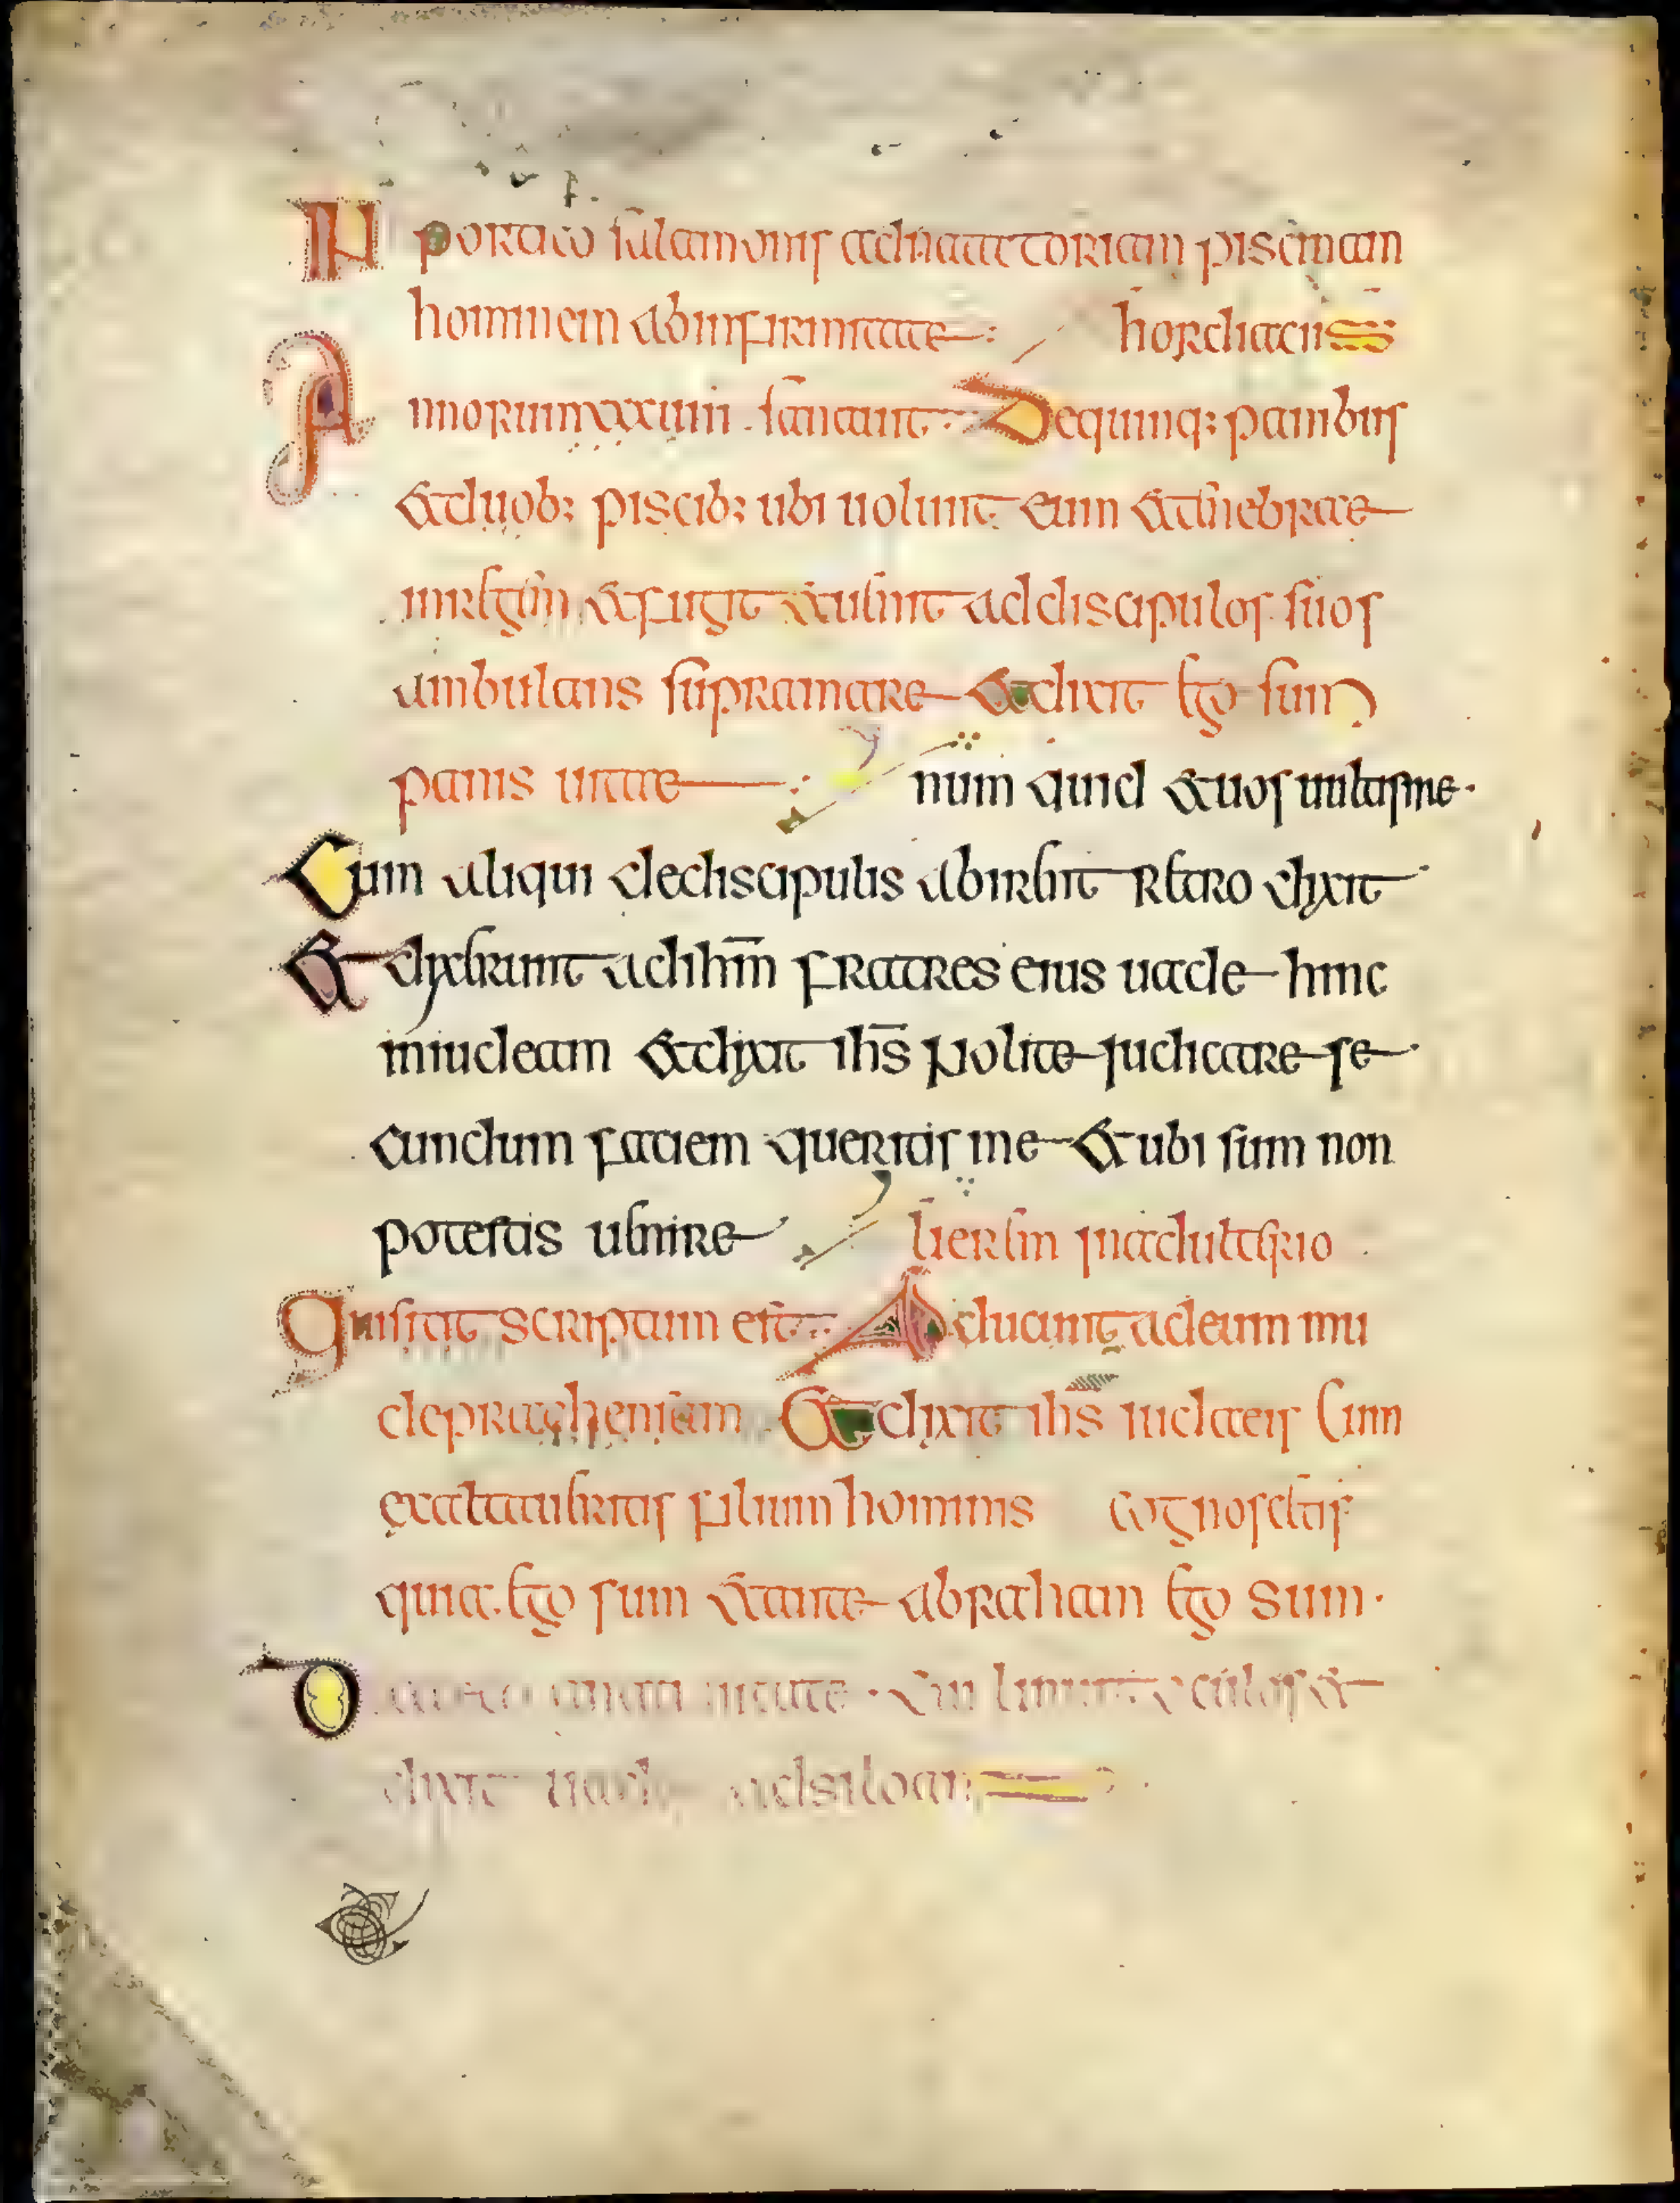 IN portico salamonis ad natatoriam piscinam
hominem ab infirmitate hordiaciis
Annorum xxxuiii sanauit De quinq: panibus
& duob: piscib: ubi uolunt eum &
& fugit & uenit ad discipulos suos
ambulans supra mare & dixit ego sum
panis uitae num quid & uos uultis me
Cum aliqui de discipulis abirent retro dixit
& dixerunt ad ihm fratres eius uade hinc
in iudeam & dixit ihs Nolite iudicare se
cundum faciem queritis me & ubi sum non
potestis uenire lierem in adulterio
quis scriptum est Aducunt ad eum mu
depraehensam & dixit ihs iudaeis Cum
exaltaueritis filium hominis cognoscetis
quia ego sum & ante abraham ego sum
oculos &
dixit uade ad siloam